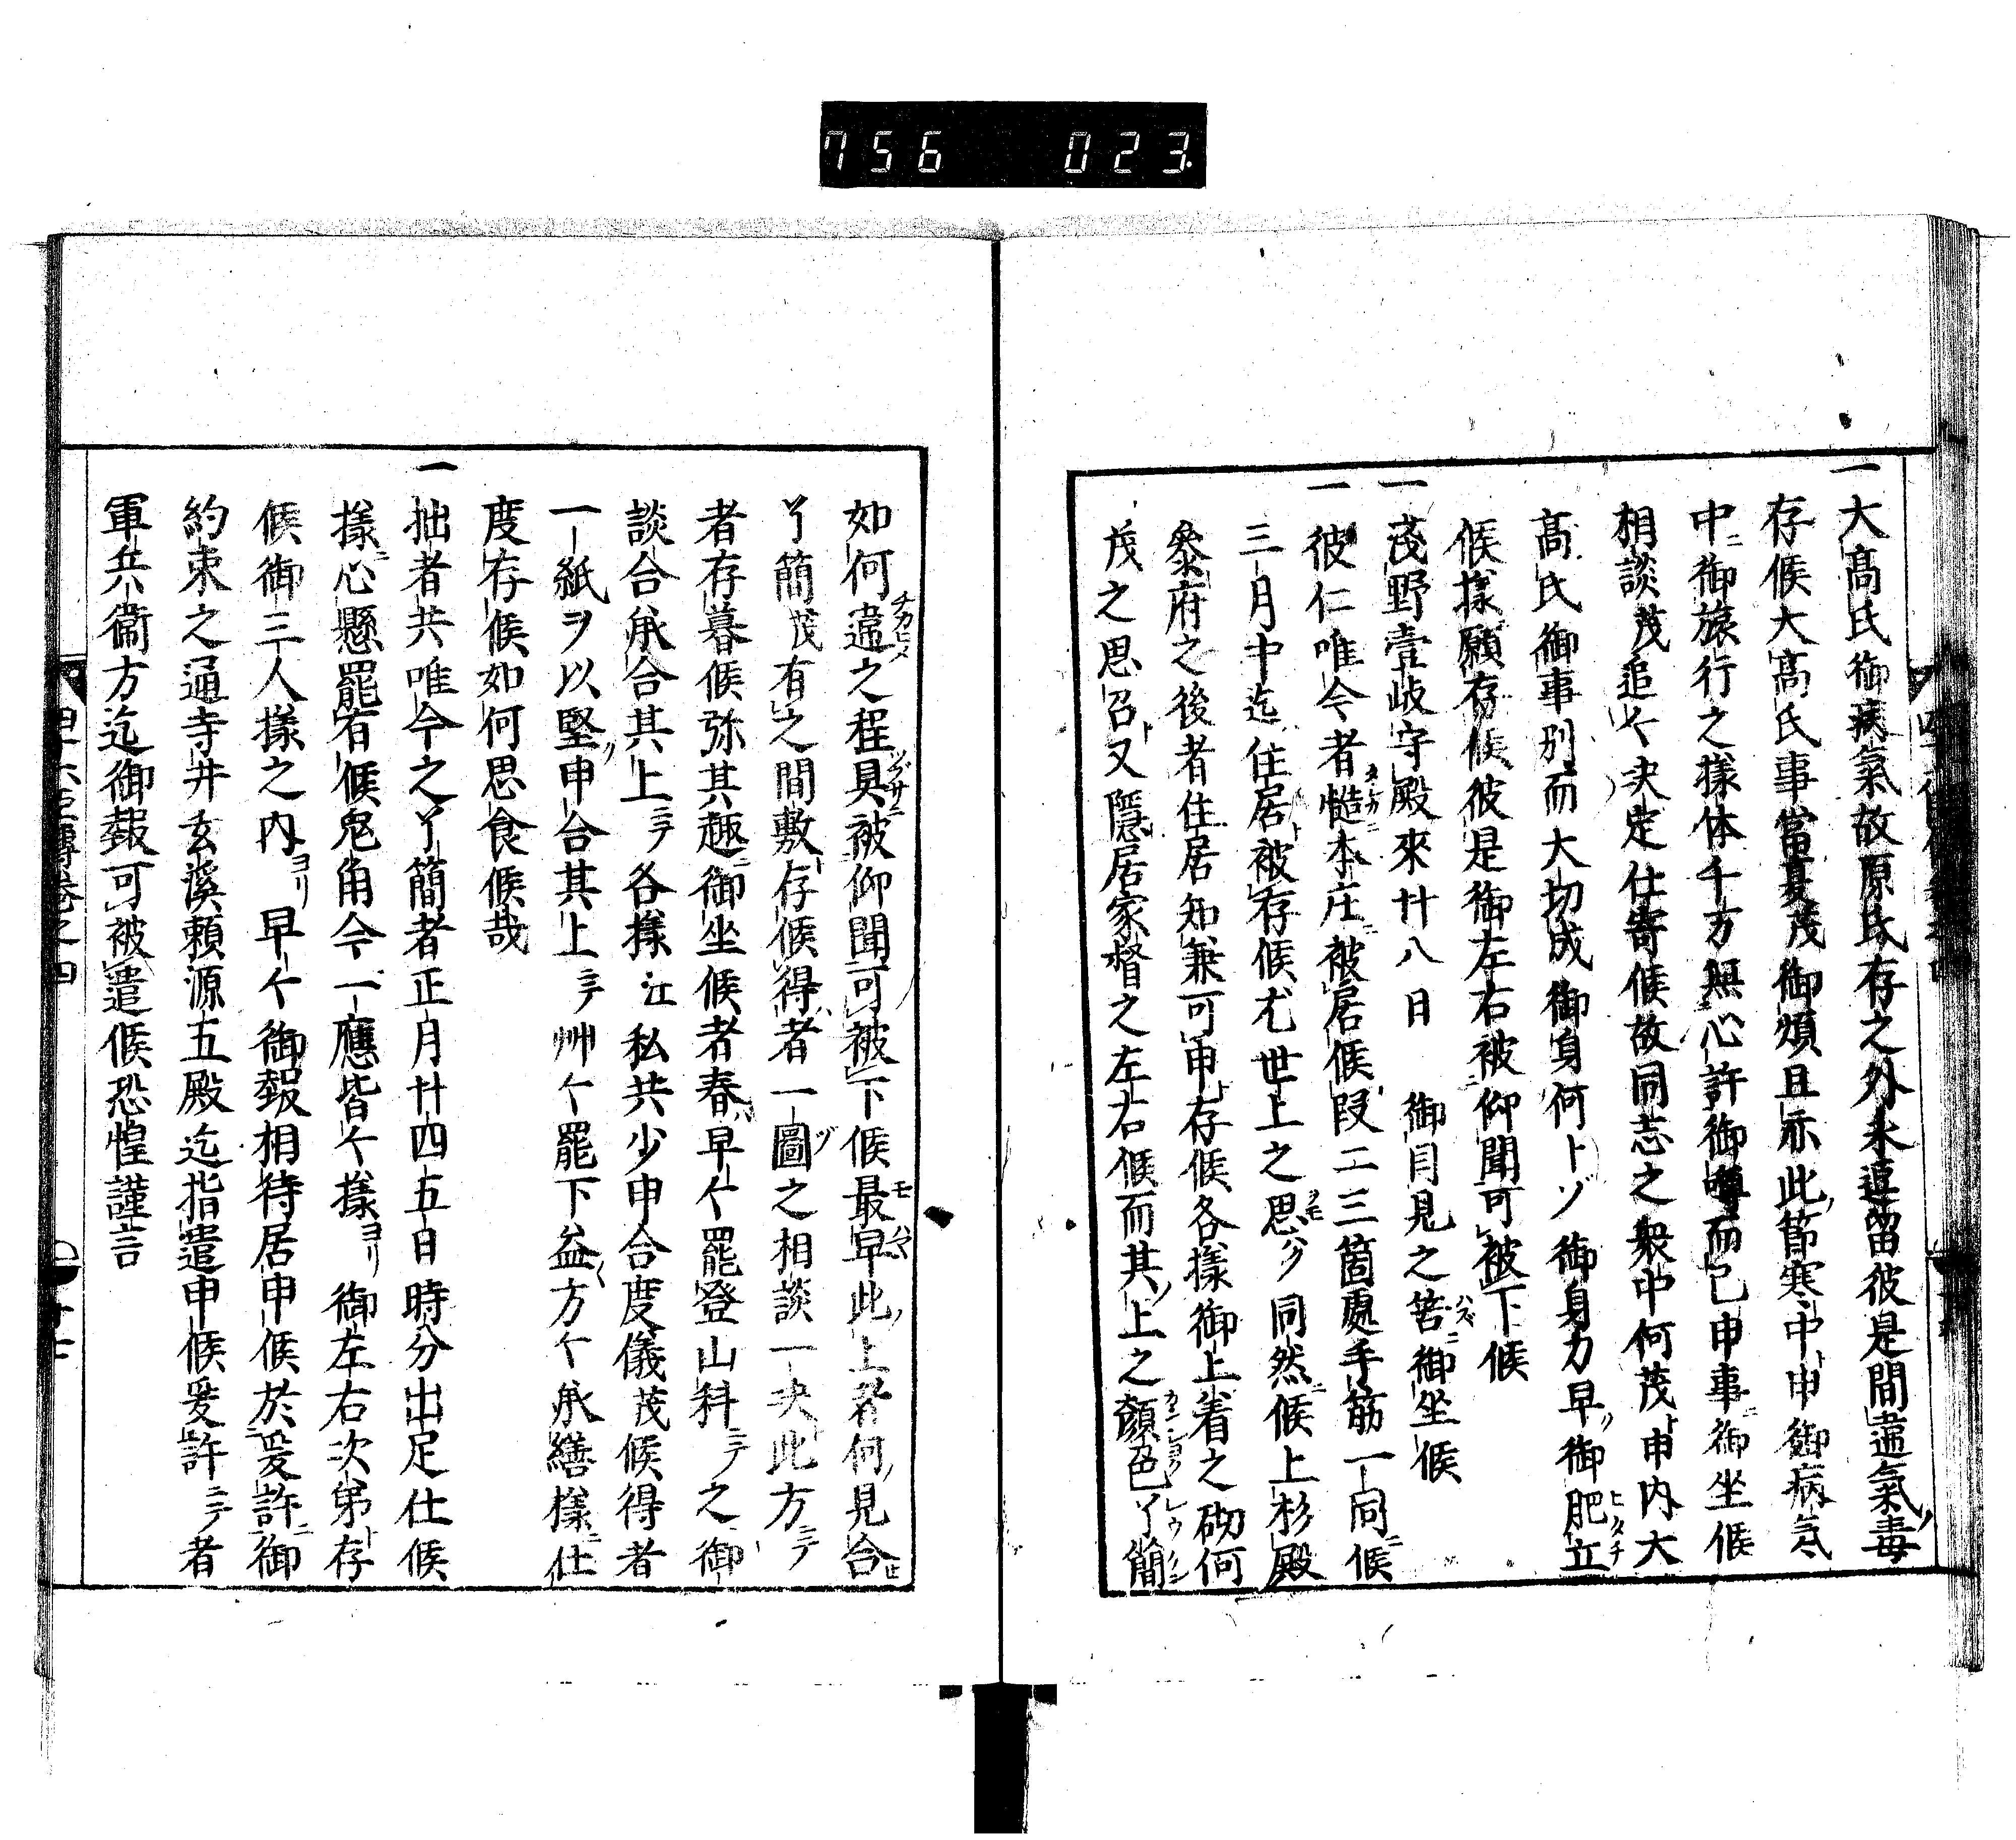 756 023
一大髙氏御病氣故原氏存之外永逗留彼是間違氣毒
存候大髙氏事當夏茂御煩且亦此節寒中申御病氣
中御旅行之樣体千万無心許御噂而已申事御坐候
相談茂追々决定仕寄候故同志之衆中何茂申内大
髙氏御事別而大切成御身何トゾ御身力早御肥立
候樣願存候彼是御左右被仰聞可被下候
一茂野壹岐守殿來廿八日 御目見之筈御坐候
一彼仁唯今者慥本庄被居候段二三箇處手筋一同候
三月中迄住居被存候尤世上之思ハク同然候上杉殿
參府之後者住居知兼可申存候各樣御上着之砌何
茂之思召又隱居家督之左右候而其上之顏色了簡
如何違之程具被仰聞可被下候最早此上者何見合
了簡茂有之間敷存候得者一圖之相談一决此方ニテ
者存暮候弥其趣御坐候者春早々罷登山科ニテ之御
談合承合其上ニテ各樣江私共少申合度儀茂候得者
一紙ヲ以堅申合其上ニテ艸々罷下益方々承繕樣仕
度存候如何思食候哉
一拙者共唯今之了簡者正月廿四五日時分出足仕候
樣心懸罷有候兎角今一應皆々樣ヨリ御左右次第存
候御三人樣之内ヨリ早々御報相待居申候於爰許御
約束之通寺井玄溪賴源五殿迄指遣申候爰許ニテ者
軍兵衞方迄御報可被遣候恐惶謹言